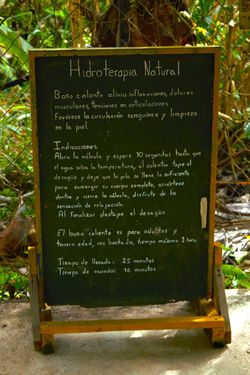 Hidroterapia Natural
Baño caliente alivia inflamaciones, dolores
musculares, tensiones en articulaciones.
Favorece la circulación sanguinea y limpieza
en la piel.
Indicaciones
Abra la válvula y espere 10 segundos hasta que
el agua suba la temperatura, al calentar tape el
desagüe y deje que la pila se llene lo suficiente
para sumergir su cuerpo completo, acuéstese
dentro y cierre la válvula, disfrute de la
sensación de relajación.
Al finalizar destape el desagüe
El baño caliente es para adultos y
tercera edad, uso limitado, tiempo máximo 1 hora
Tiempo de llenado: 25 minutos
Tiempo de vaciado: 16 minutos